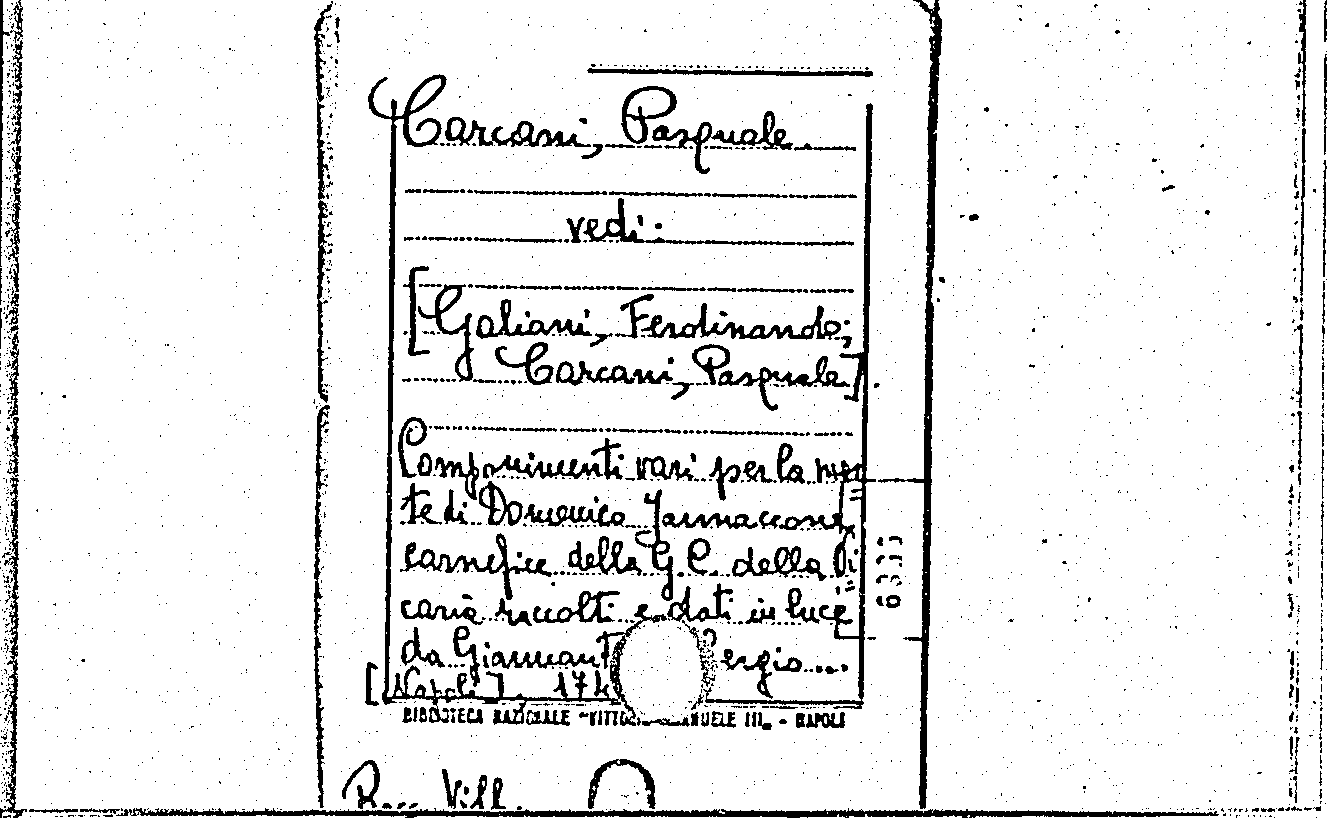 Carcani, Pasquale.
vedi:
[Galiani, Ferdinando;
Carcani, Pasquale].
Componimenti vari per la mor
te di Domenico Jannaccone,
carnefice della G.C. della Vi
caria raccolti e dati in luce
da Giannant ergio....
[Napoli], 174
BIBLIOTECA NAZIONALE "VITTORIO EMANUELE III" - NAPOLI
R... Vill.